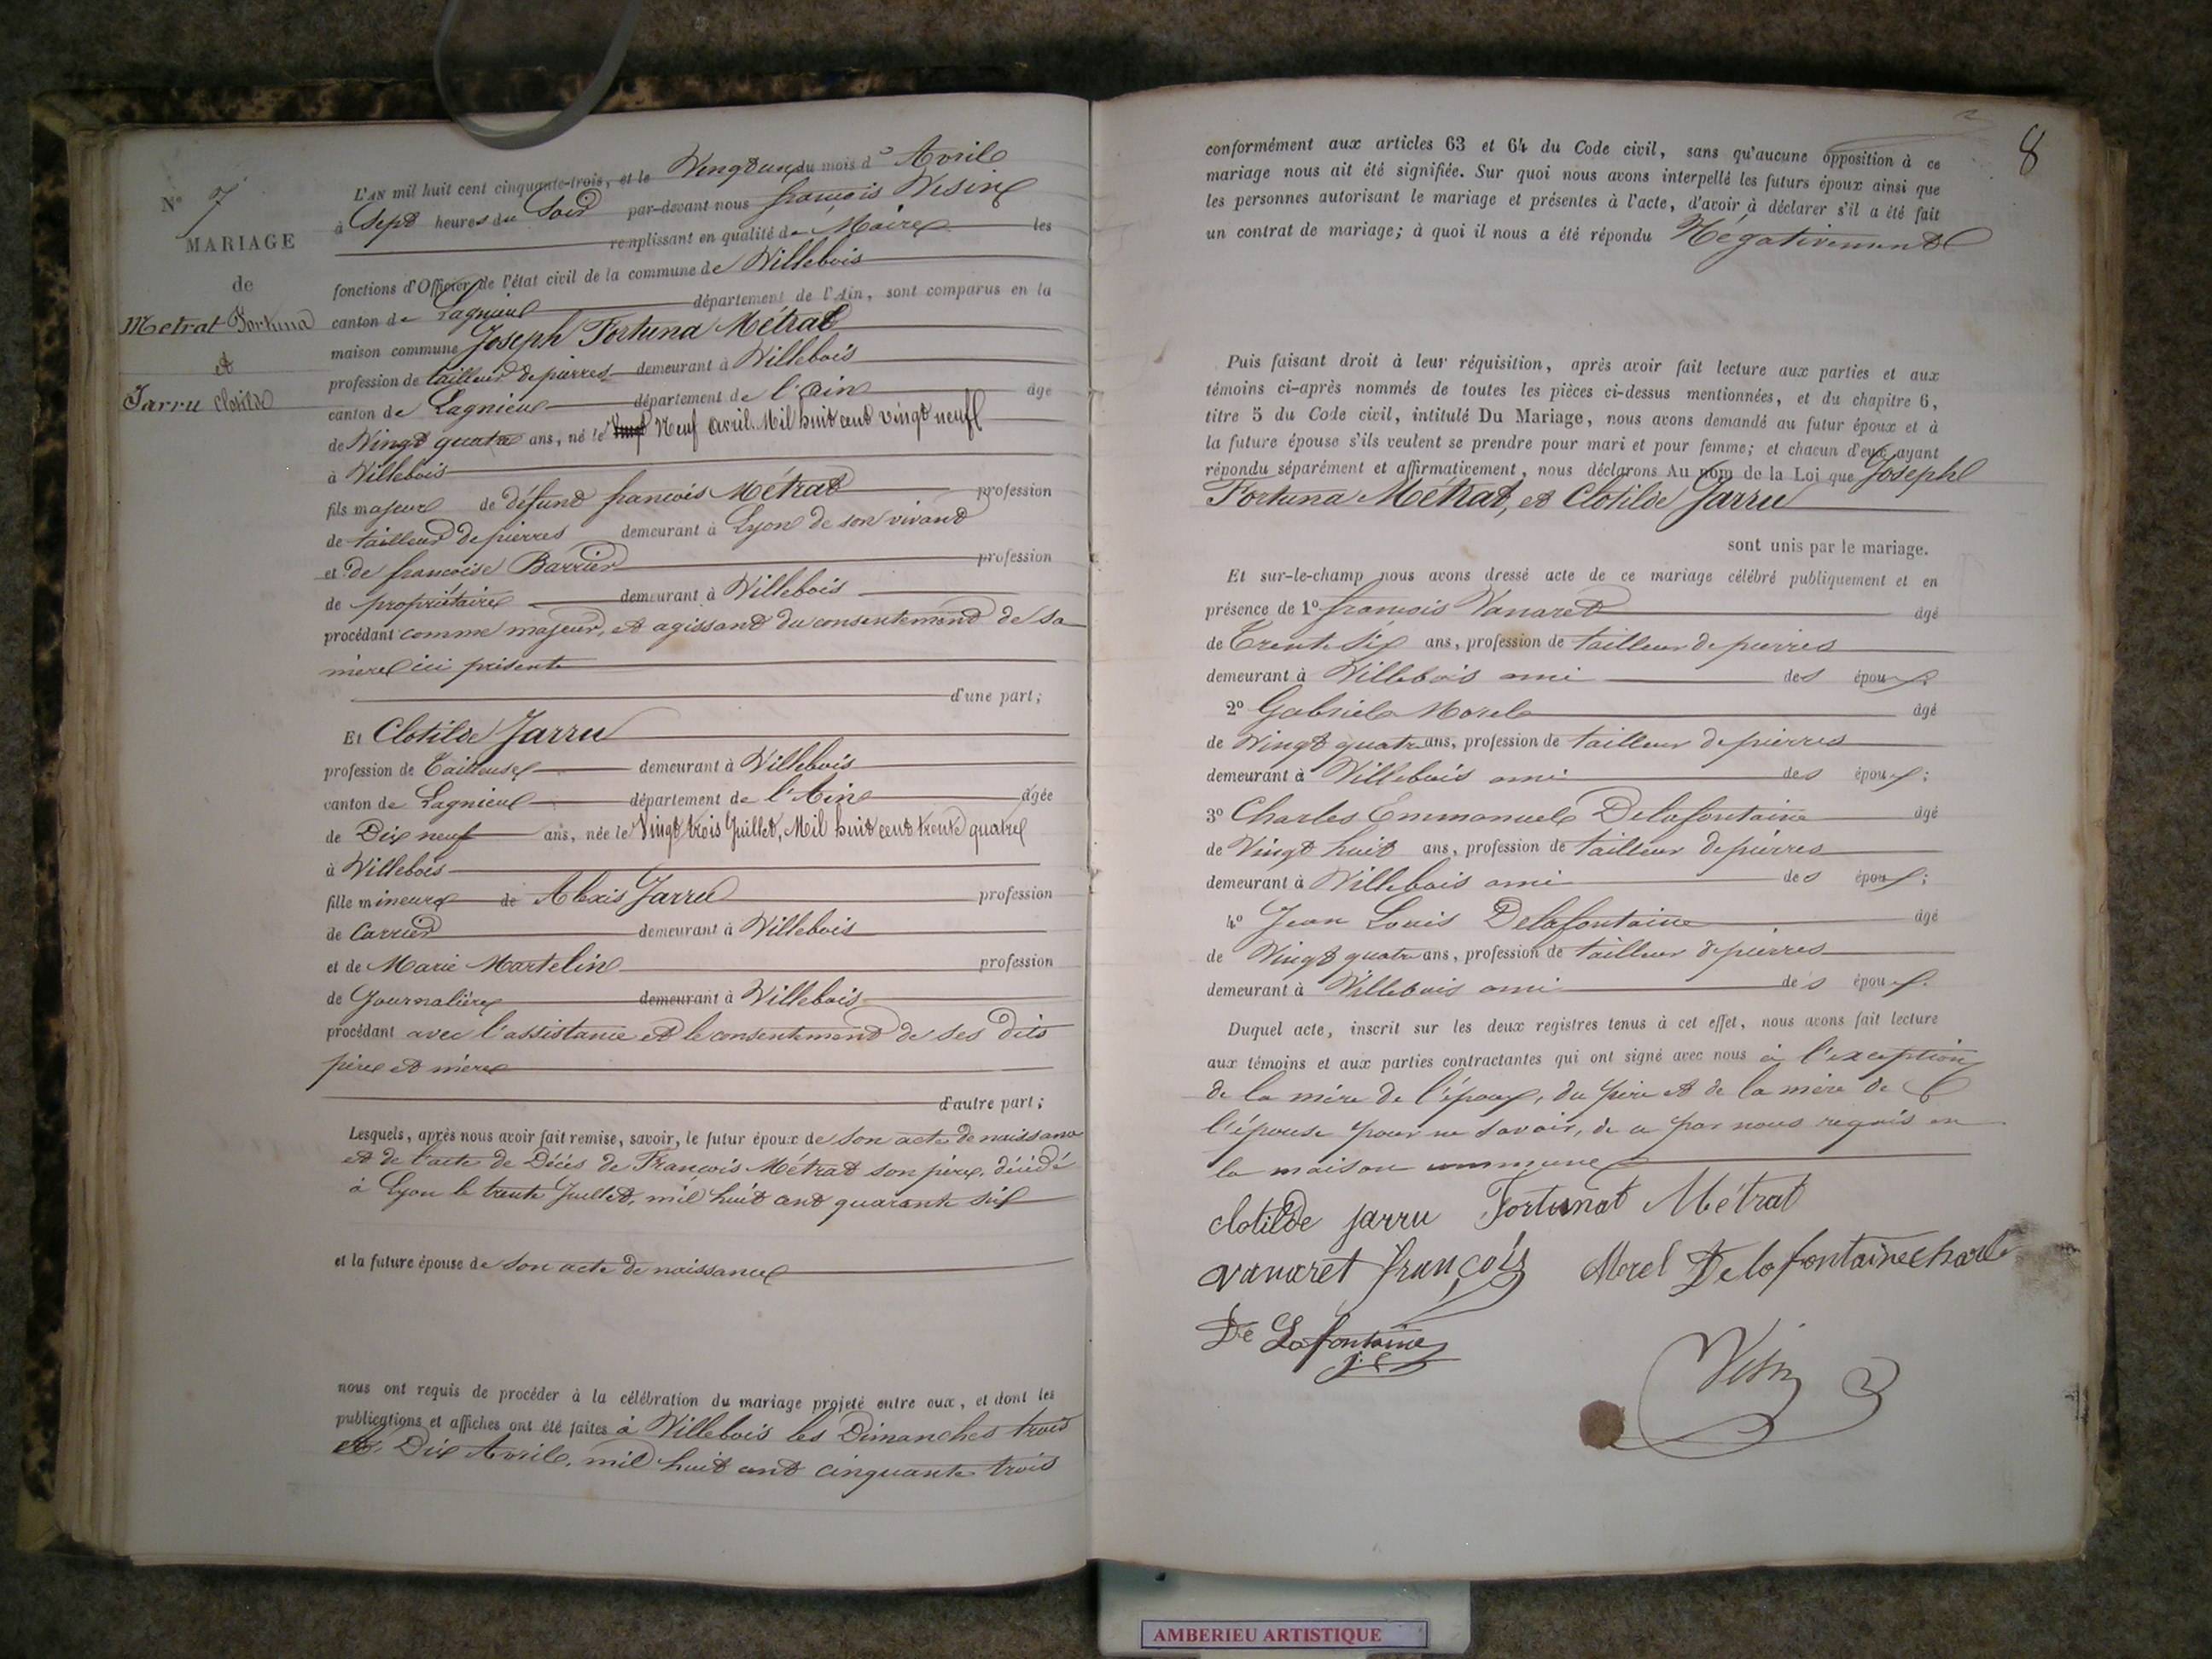 N° 7
MARIAGE
de
Metrat Fortuna
et
Jarru Clotilde
L'AN mil huit cent cinquante-trois, et le Vingt un du mois d'Avril
à Sept heures du Soir par-devant nous françois Vesin
remplissant en qualité de Maire les
fonctions d'Officier de l'état civil de la commune de Villebois
canton de Lagnieu département de l'Ain, sont comparus en la
maison commune Joseph Fortuna Métrat
profession de tailleur de pierres demeurant à Villebois
canton de Lagnieu département de l'ain âgé
de Vingt quatre ans, né le Neuf avril Mil huit cent vingt neuf
à Villebois
fils majeur de défunt françois Métrat profession
de tailleur de pierres demeurant à Lyon de son vivant
et de francoise Barrier profession
de propriétaire demeurant à Villebois
procédant comme majeur, et agissant du consentement de sa
mère ici présente
d'une part;
Et Clotilde Jarru
profession de Tailleuse demeurant à Villebois
canton de Lagnieu département de l'Ain âgée
de Dix neuf ans, née le Vingt trois Juillet, Mil huit cent trente quatre
à Villebois
fille mineure de Alexis Jarru profession
de Carrier demeurant à Villebois
et de Marie Martelin profession
de Journalière demeurant à Villebois
procédant avec l'assistance et le consentement de ses dits
père et mère
d'autre part;
Lesquels, après nous avoir fait remise, savoir, le futur époux de son acte de naissance
et de l'acte de Décès de François Métrat son père, décédé
à Lyon le trente Juillet, mil huit cent quarante six
et la future épouse de son acte de naissance
nous ont requis de procéder à la célébration du mariage projeté entre eux, et dont les
publications et affiches ont été faites à Villebois les Dimanches trois
et Dix Avril, mil huit cent cinquante trois
8
conformément aux articles 63 et 64 du Code civil, sans qu'aucune opposition à ce
mariage nous ait été signifiée. Sur quoi nous avons interpellé les futurs époux ainsi que
les personnes autorisant le mariage et présentes à l'acte, d'avoir à déclarer s'il a été fait
un contrat de mariage; à quoi il nous a été répondu Négativement
Puis faisant droit à leur réquisition, après avoir fait lecture aux parties et aux
témoins ci-après nommés de toutes les pièces ci-dessus mentionnées, et du chapitre 6,
titre 5 du Code civil, intitulé Du Mariage, nous avons demandé au futur époux et à
la future épouse s'ils veulent se prendre pour mari et pour femme; et chacun d'eux ayant
répondu séparément et affirmativement, nous déclarons Au nom de la Loi que Joseph
Fortuna Métrat, et Clotilde Jarru
sont unis par le mariage.
Et sur-le-champ nous avons dressé acte de ce mariage célébré publiquement et en
présence de 1° françois Vanaret âgé
de Trente Six ans, profession de tailleur de pierres
demeurant à Villebois ami des époux
2° Gabriel Morel âgé
de Vingt quatre ans, profession de tailleur de pierres
demeurant à Villebois ami des époux;
3° Charles Emmanuel Delafontaine âgé
de Vingt huit ans, profession de tailleur de pierres
demeurant à Villebois ami des époux;
4° Jean Louis Delafontaine âgé
de Vingt quatre ans, profession de tailleur de pierres
demeurant à Villebois ami des époux.
Duquel acte, inscrit sur les deux registres tenus à cet effet, nous avons fait lecture
aux témoins et aux parties contractantes qui ont signé avec nous à l'exception
de la mère de l'époux, du père et de la mère de
l'épouse pour ne savoir, de ce par nous requis en
la maison commune
clotilde jarru Fortunat Métrat
vanaret françois Morel Delafontaine charle
De Lafontaine
Vesin
AMBERIEU ARTISTIQUE